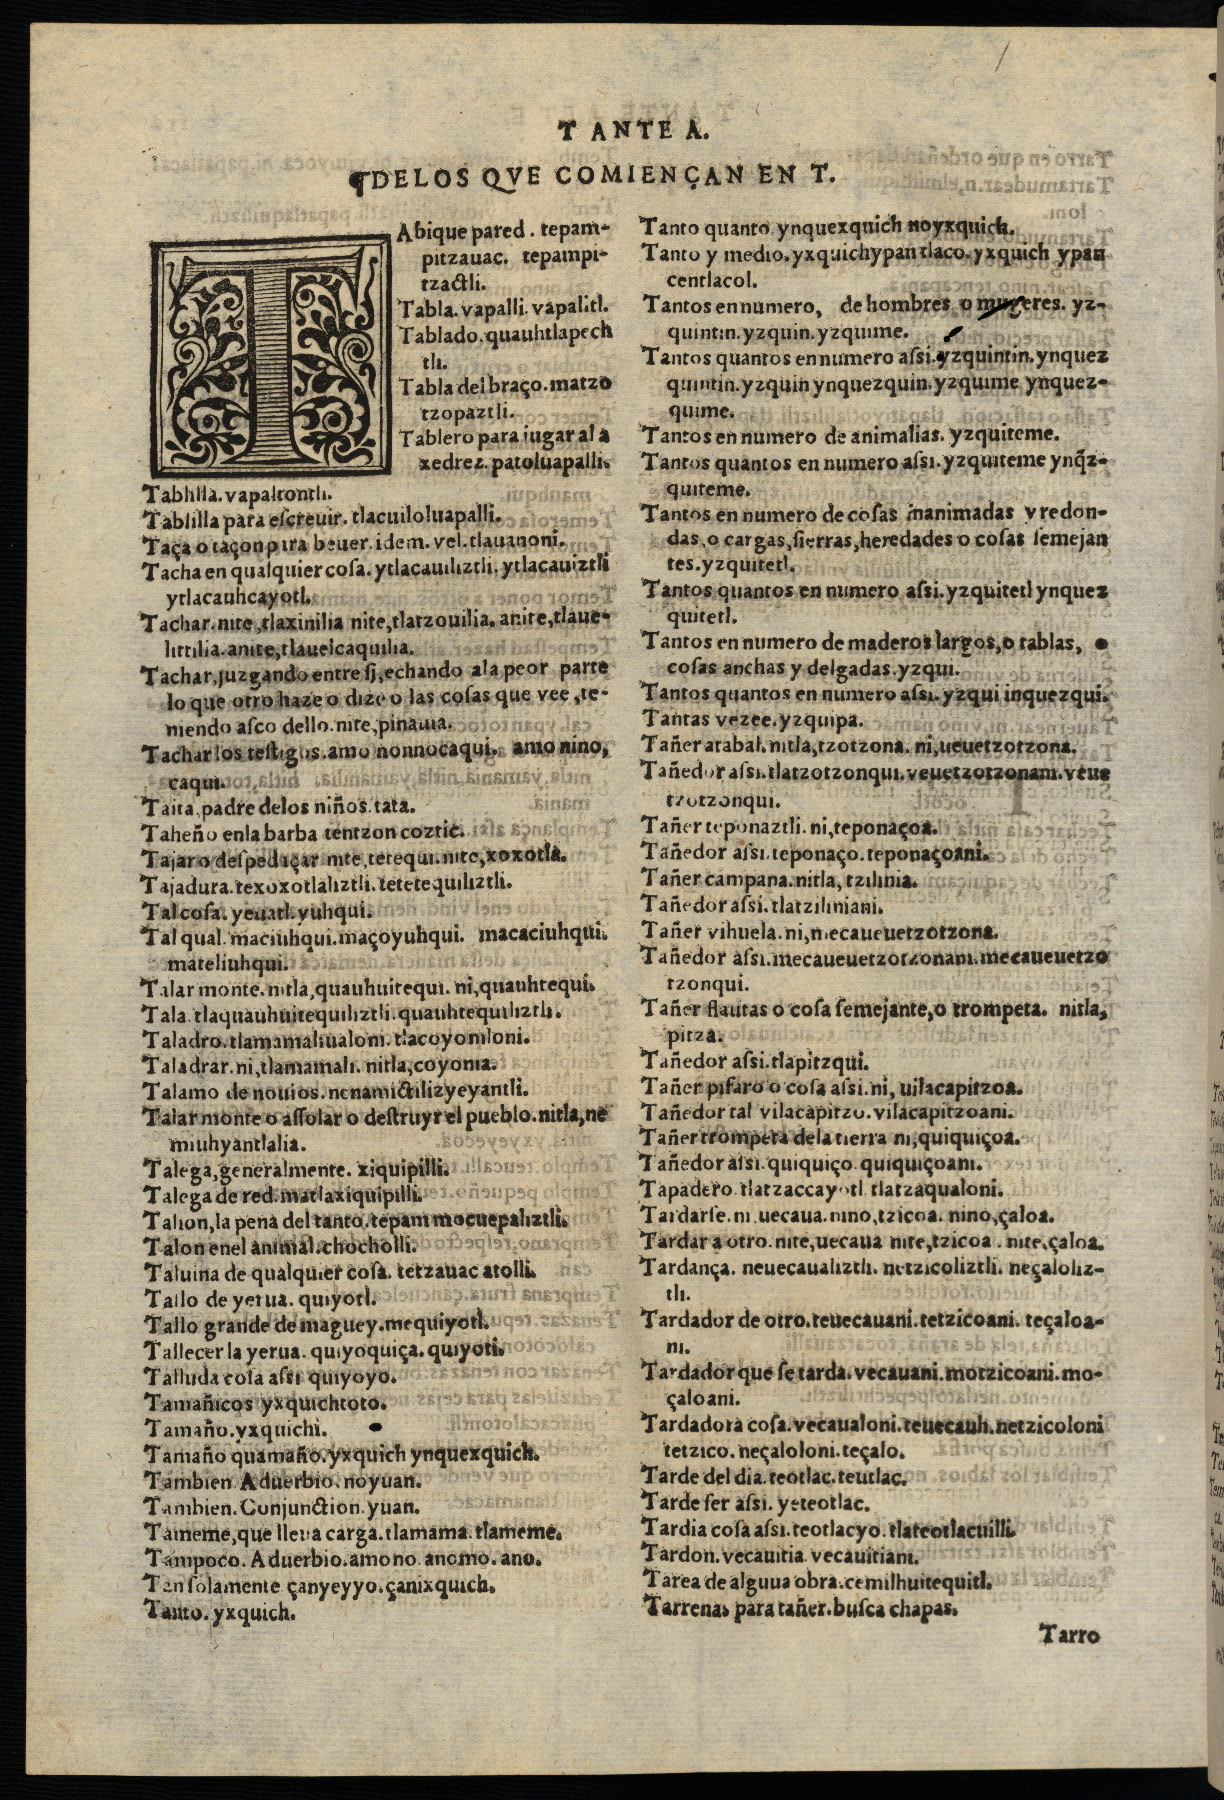 T ANTE A.
¶DELOS QVE COMIENÇAN EN T.
TAbique pared. tepam-
pitzauac. tepampi-
tzactli.
Tabla. vapalli. vapalitl.
Tablado. quauhtlapech
tli.
Tabla del braço. matzo
tzopaztli.
Tablero para iugar al a
xedrez. patoluapalli.
Tablilla. vapaltontli.
Tablilla para eſcreuir. tlacuiloluapalli.
Taça o taçon para beuer. idem. vel. tlauanoni.
Tacha en qualquier coſa. ytlacauiliztli. ytlacauiztli
ytlacauhcayotl.
Tachar. nite, tlaxinilia nite, tlatzouilia. anite, tlaue-
littilia. anite, tlauelcaquilia.
Tachar, juzgando entre ſj, echando ala peor parte
lo que otro haze o dize o las coſas que vee, te-
niendo aſco dello. nite, pinauia.
Tachar los teſtigos. amo nonnocaqui. amo nino,
caqui.
Taita, padre delos niños. tata.
Taheño enla barba tentzon coztic.
Tajar o deſpedaçar nite, tetequi. nite, xoxotla.
Tajadura. texoxotlaliztli. tetetequiliztli.
Tal coſa. yeuatl. yuhqui.
Tal qual. maciuhqui. maçoyuhqui. macaciuhqui.
mateliuhqui.
Talar monte. nitla, quauhuitequi. ni, quauhtequi.
Tala. tlaquauhuitequiliztli. quauhtequiliztli.
Taladro. tlamamaliualoni. tlacoyoniloni.
Taladrar. ni, tlamamali. nitla, coyonia.
Talamo de nouios. nenamictilizyeyantli.
Talar monte o aſſolar o deſtruyr el pueblo. nitla, ne
miuhyantlalia.
Talega, generalmente. xiquipilli.
Talega de red. matlaxiquipilli.
Talion, la pena del tanto. tepam mocuepaliztli.
Talon enel animal. chocholli.
Taluina de qualquier coſa. tetzauac atolli.
Tallo de yerua. quiyotl.
Tallo grande de maguey. mequiyotl.
Tallecer la yerua. quiyoquiça. quiyoti.
Talluda coſa aſſi quiyoyo.
Tamañicos yxquichtoto.
Tamaño. yxquichi.
Tamaño quamaño. yxquich ynquexquich.
Tambien Aduerbio. noyuan.
Tambien. Conjunction. yuan.
Tameme, que lleua carga. tlamama. tlameme.
Tampoco. Aduerbio. amono. anomo. ano.
Tan ſolamente çanyeyyo. çanixquich.
Tanto. yxquich.
Tanto quanto. ynquexquich noyxquich.
Tanto y medio. yxquichypan tlaco. yxquich ypan
centlacol.
Tantos en numero, de hombres o mugeres. yz-
quintin. yzquin. yzquime.
Tantos quantos en numero aſſi. yzquintin. ynquez
quintin. yzquin ynquezquin. yzquime ynquez-
quime.
Tantos en numero de animalias. yzquiteme.
Tantos quantos en numero aſsi. yzquiteme ynq̃z-
quiteme.
Tantos en numero de coſas inanimadas y redon-
das, o cargas, ſierras, heredades o coſas ſemejan
tes. yzquitetl.
Tantos quantos en numero aſſi. yzquitetl ynquez
quitetl.
Tantos en numero de maderos largos, o tablas, o
coſas anchas y delgadas. yzqui.
Tantos quantos en numero aſsi. yzqui inquezqui.
Tantas vezee. yzquipa.
Tañer atabal. nitla, tzotzona. ni, ueuetzotzona.
Tañedor aſsi. tlatzotzonqui. veuetzotzonani. veue
tzotzonqui.
Tañer teponaztli. ni, teponaçoa.
Tañedor aſsi. teponaço. teponaçoani.
Tañer campana. nitla, tzilinia.
Tañedor aſsi. tlatziliniani.
Tañer vihuela. ni, mecaueuetzotzona.
Tañedor aſsi. mecaueuetzotzonani. mecaueuetzo
tzonqui.
Tañer flautas o coſa ſemejante, o trompeta. nitla,
pitza.
Tañedor aſsi. tlapitzqui.
Tañer pifaro o coſa aſsi. ni, uilacapitzoa.
Tañedor tal vilacapitzo. vilacapitzoani.
Tañer trompeta dela tierra ni, quiquiçoa.
Tañedor aſsi. quiquiço. quiquiçoani.
Tapadero. tlatzaccayotl tlatzaqualoni.
Tardarſe. ni uecaua. nino, tzicoa. nino, çaloa.
Tardar a otro. nite, uecaua nite, tzicoa. nite, çaloa.
Tardança. neuecaualiztli. netzicoliztli. neçaloliz-
tli.
Tardador de otro. teuecauani. tetzicoani. teçaloa-
ni.
Tardador que ſe tarda. vecauani. motzicoani. mo-
çaloani.
Tardadora coſa. vecaualoni. teuecauh. netzicoloni
tetzico. neçaloloni. teçalo.
Tarde del dia. teotlac. teutlac.
Tarde ſer aſsi. yeteotlac.
Tardia coſa aſsi. teotlacyo. tlateotlacuilli.
Tardon. vecauitia vecauitiani.
Tarea de alguua obra. cemilhuitequitl.
Tarrenas para tañer. buſca chapas.
Tarro